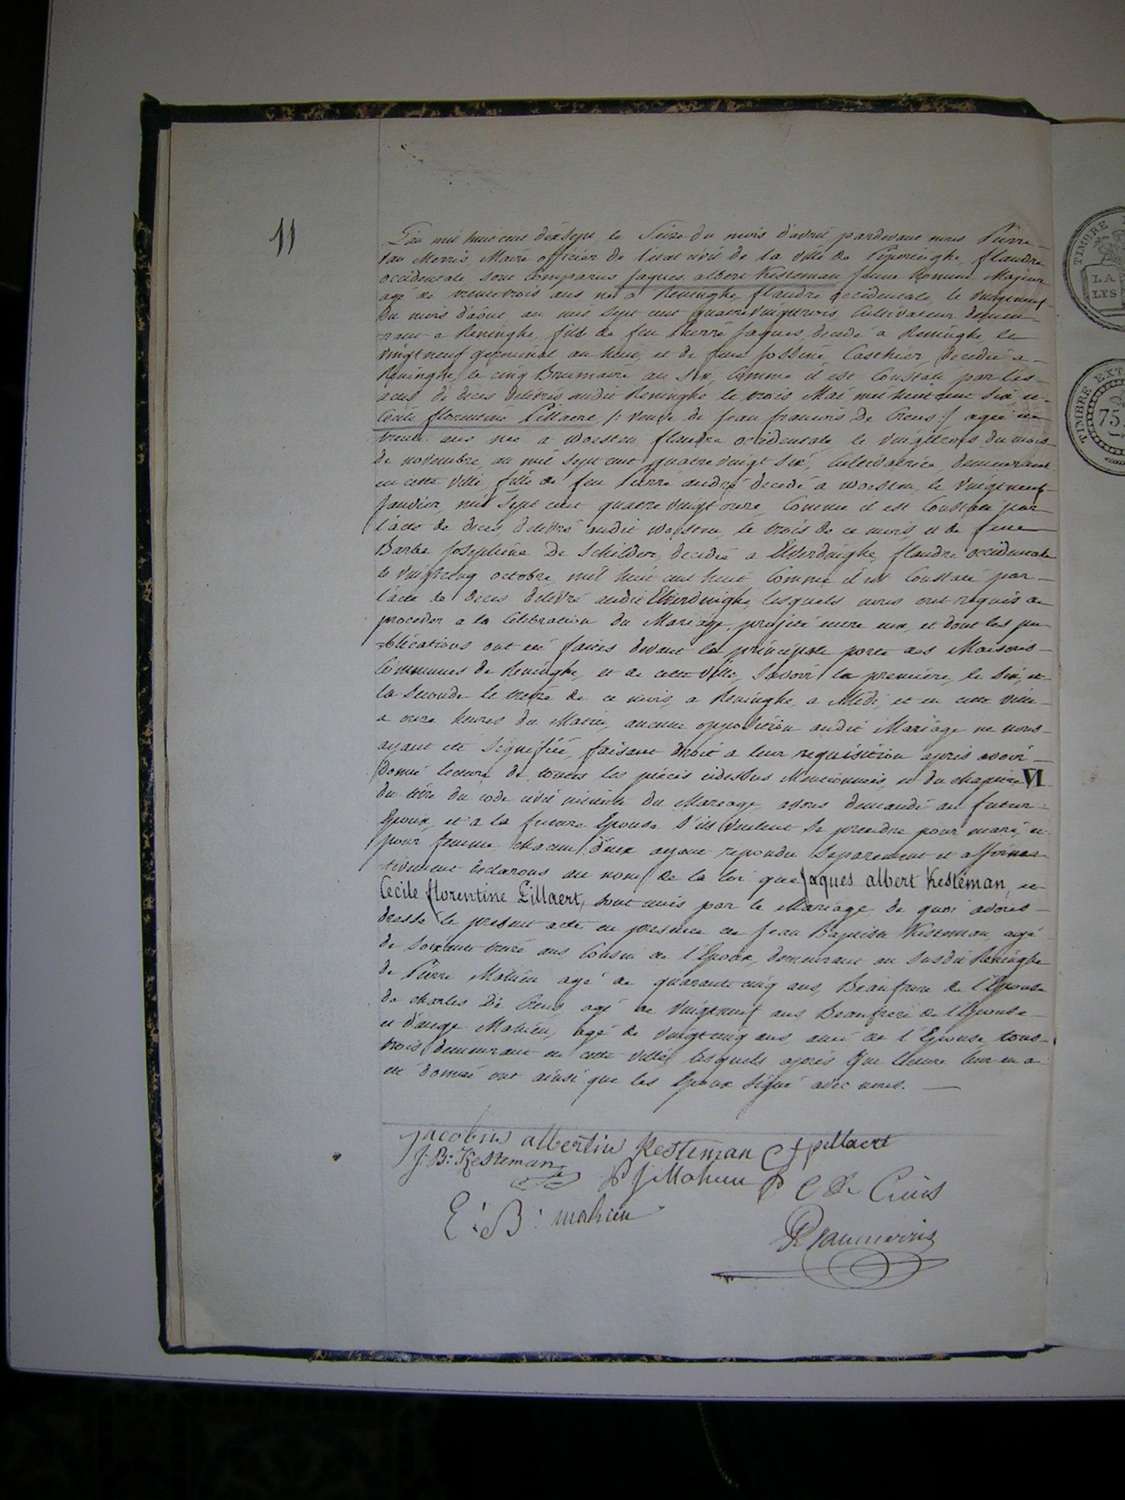 11
L'an mil huit cent dixsept, le Seize du mois d'avril pardevant nous Pierre
Jan Merris, Maire officier de l'état civil de la ville de Poperinghe, flandre
occidentale sont comparus Jaques albert Kesteman jeune homme Majeur
agé de trentetrois ans né a Reninghe flandre occidentale, le vingtneuf
du mois d'aout, an mil sept cent quatrevingttrois Cultivateur demeu-
rant a Reninghe, fils de feu Pierre Jaques, decedé a Reninghe le
vingtneuf germinal an huit, et de feue Jossine Casthier, decedée a
Reninghe, le cinq Brumaire an Six, comme il est Constaté par les
actes de deces delivrés audit Reninghe le trois Mai mil huit cent Six et
Cécile florentine Pillaert /: veuve de Jean francois De Creus :/ agée de
trente ans née a woesten flandre occidentale le vingttrois du mois
de novembre, an mil sept cent quatre vingt six, Cultivatrice, demeurant
en cette ville fille de feu Pierre andré decedé a woesten, le vingtneuf
Janvier, mil sept cent quatre vingt onze, Comme il est Constaté par
l'acte de deces delivré audit woesten, le trois de ce mois, et de feue
Barbe Josephine De Schilder, decedée a Elverdinghe, flandre occidentale
le vingtcinq octobre, mil huit cent huit Comme il est Constaté par
l'acte de deces delivré audit Elverdinghe, lesquels nous ont requis de
proceder a la Célébration du Mariage projeté entre eux, et dont les pu-
blications ont été faites devant la principale porte des Maisons
Communes de Reninghe, et de cette ville, Savoir la première, le Six, et
la Seconde le treize de ce mois, a Reninghe, a Midi, et en cette ville
a onze heures du Matin, aucune opposition audit Mariage ne nous
ayant été signifiée, faisant droit a leur requisition après avoir
donné lecture de toutes les pièces cidessus Mentionnées, et du chapitre VI
du titre du code civil intitulé du Mariage avons demandé au futur
Epoux, et a la future Epouse s'ils veulent se prendre pour mari, et
pour femme chacun d'eux ayant repondu Separement et affirma-
tivement declarons au nom de la loi que Jaques albert Kesteman, et
Cecile florentine Pillaert, sont unis par le Mariage, de quoi avons
dressé le present acte en presence de Jean Baptiste Kesteman, agé
de soixante treize ans Cousin de l'Epoux, demeurant au susdit Reninghe
de Pierre Mahieu agé de quarante cinq ans, Beaufrere de l'Epouse
de charles De Creus agé de vingtneuf ans Beaufrere de l'Epouse
et d'ange Mahieu, agé de vingtcinq ans ami de l'Epouse, tous
trois demeurant en cette ville, lesquels après que lecture leur en a
été donnée ont ainsi que les Epoux signé avec nous.
jacobus albertus Kesteman C f pillaert
J: B: Kesteman P J Mahieu C De Creus
E: B: mahieu
P Janmerris
TIMBRE
LA
LES
TIMBRE EXT
75